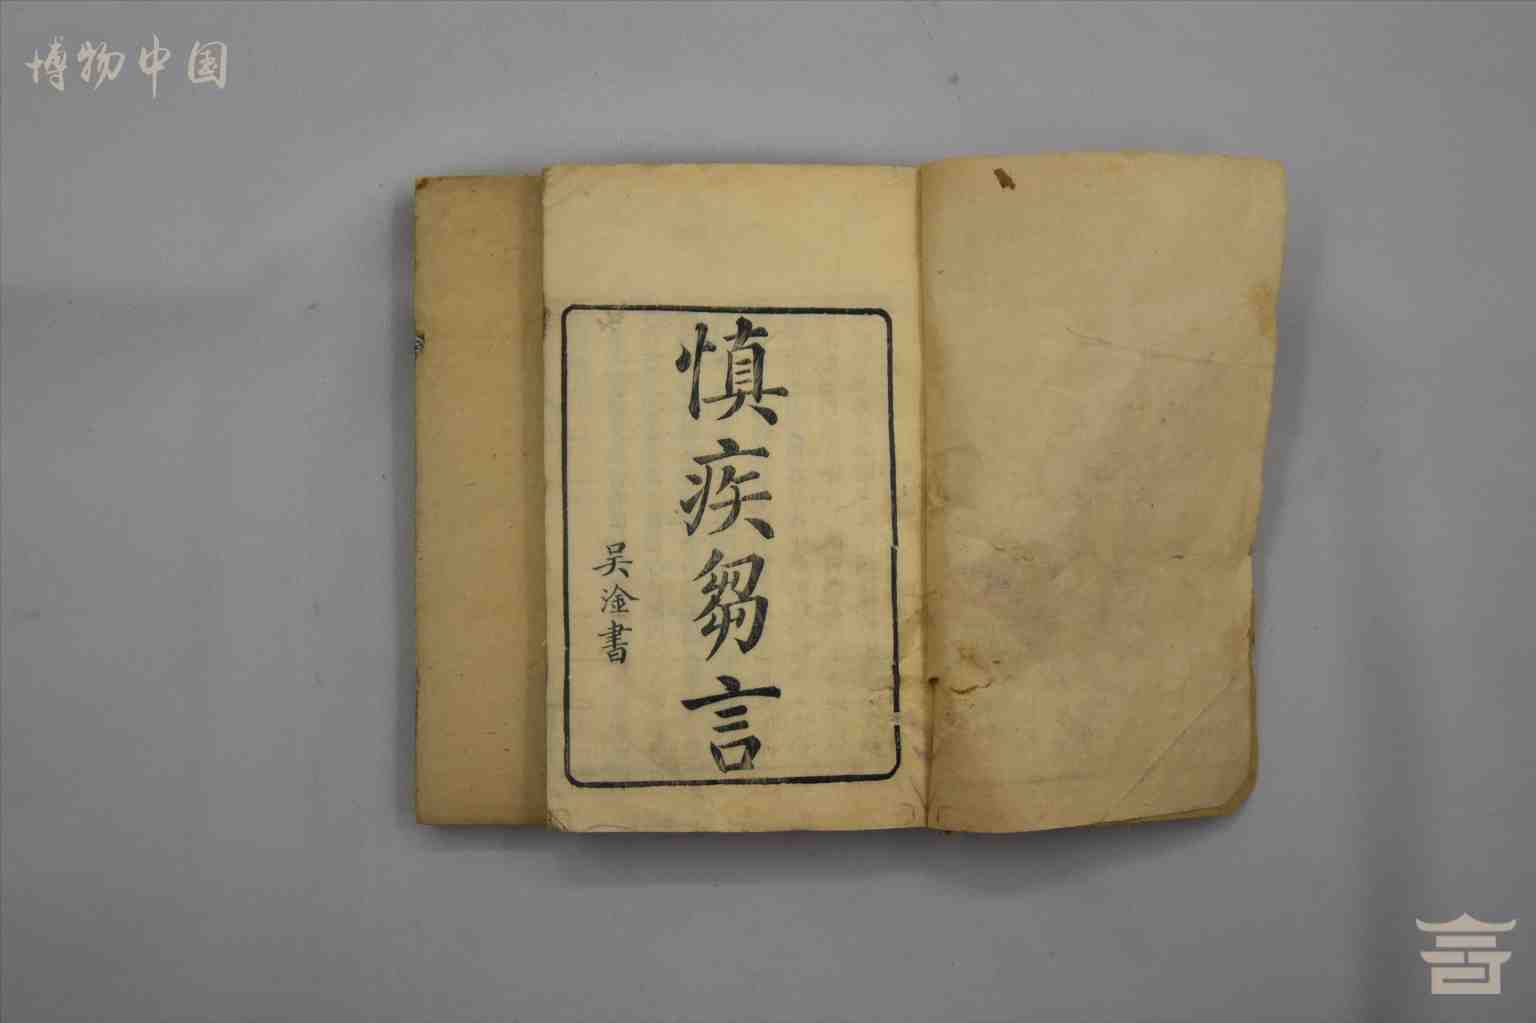 博物中国
慎疾芻言
吴淦書